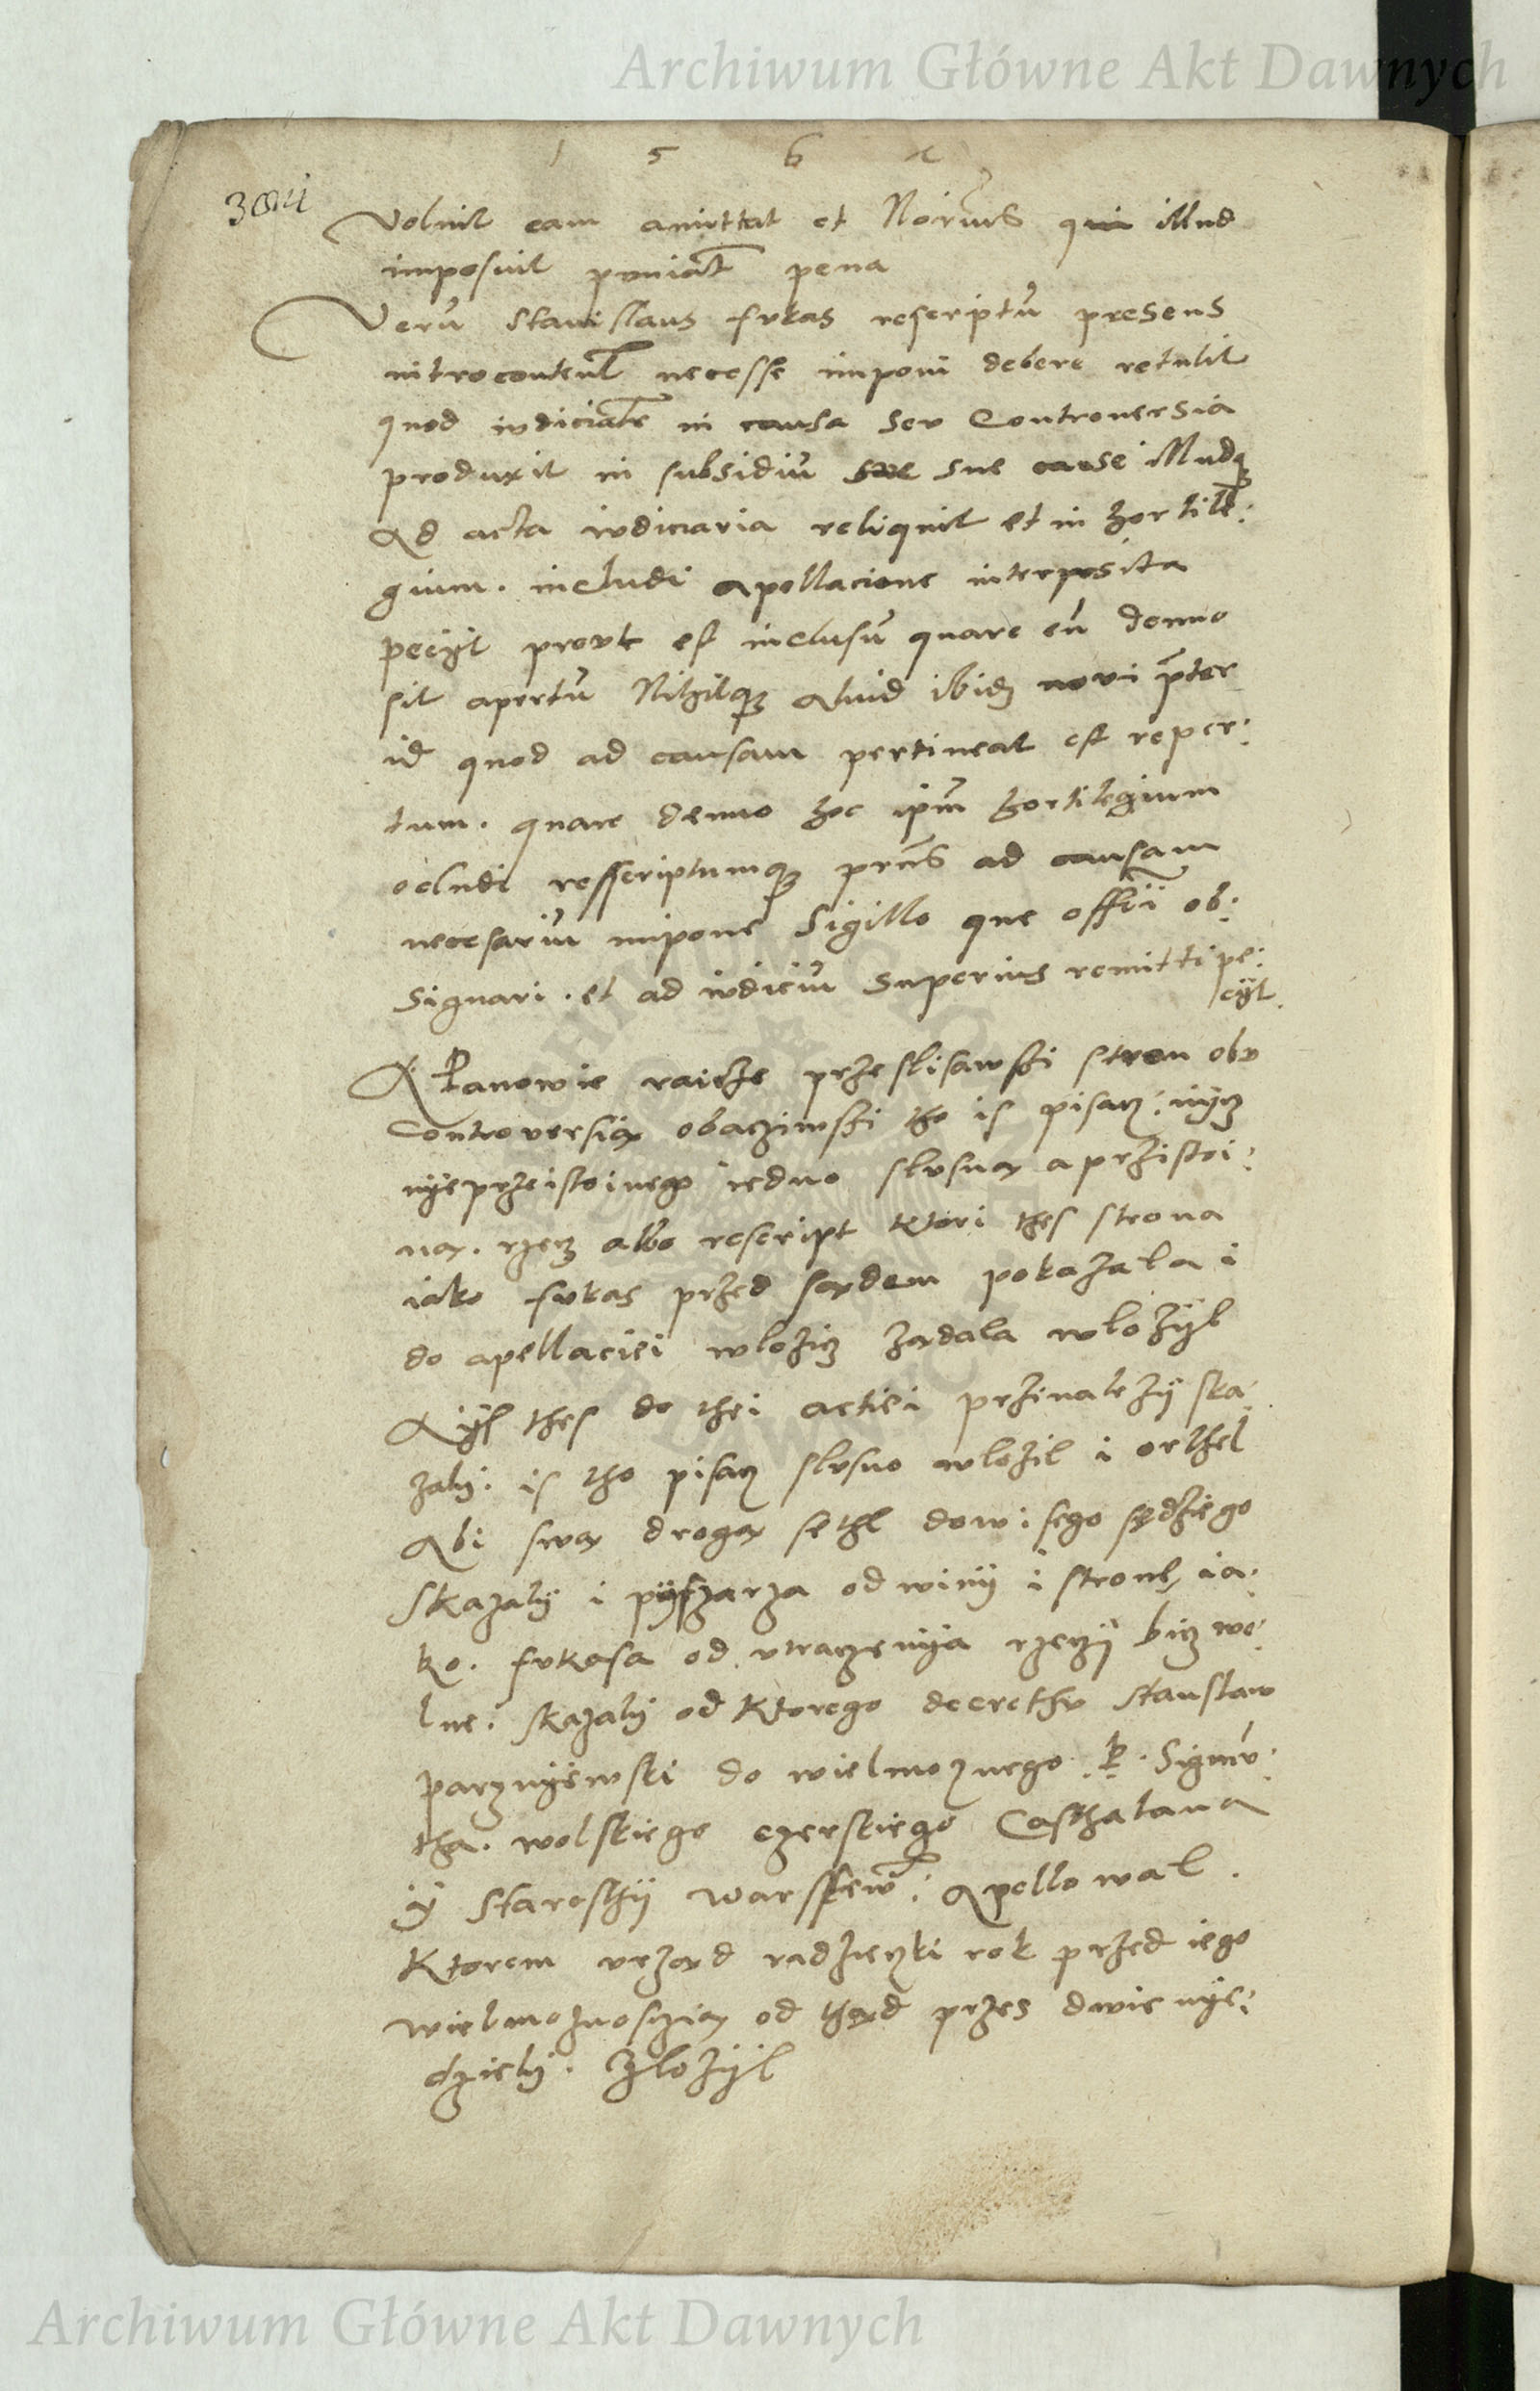 Archiwum Główne Akt Dawnych
1 5 6
voluit eam amittat et Notarius qui illud
imposuit puniat pena
Verū Stanislaus fukas rescriptū presens
introcontent necesse imponi debere retulit
quod iudicialr in causa seu Controuersia
produxit in subsidiū sue cause illudq
Ad acta iudiciaria reliquit et in hortile:
gium. includi apellacione interposita
peciit prout est inclusū quare cū denuo
sit apertū Nihilq aliud ibidē novi p̄ter
id quod ad causam pertineat est reper:
tum. quare denuo hoc ipm̄ hortilegium
ocludi resscriptumq pr̄ns ad causam
necesariū impone Sigillo que offii ob:
signari. et ad iudiciū superius remitti pe:
ciit.
A Panowie raicze przeslisawssi stron obu
Controversią obacziwssi tho is pisarz: nycz
nyeprzeistoinego iedno slusną a przistoi:
ną. rzecz albo rescript ktori thes strona
iako fukas przed sądem pokazala i
do apellaciei wlozicz ządala wlozyl
A ysz thes do thei actiei przinalezy ska:
zaly. is tho pisarz slusno wlozil i orthel
Abi swą drogą sethl do wisego sędziego
skazaly i pyssarza od winy i stronę ia:
ko. fukasa od utraczenya rzeczy bicz wo:
lne. skazaly od ktorego decrethu Stanslaw
parznyewski do wielmoznego. P. Sigmū:
tha. wolskiego czerskiego Casthalana
y Starosthy Warssew: Apellowal.
Ktorem urząd radzieczki rok przed iego
wielmoznoscią od thąd przes dwie nye:
dziely. zlozyl
Archiwum Główne Akt Dawnych